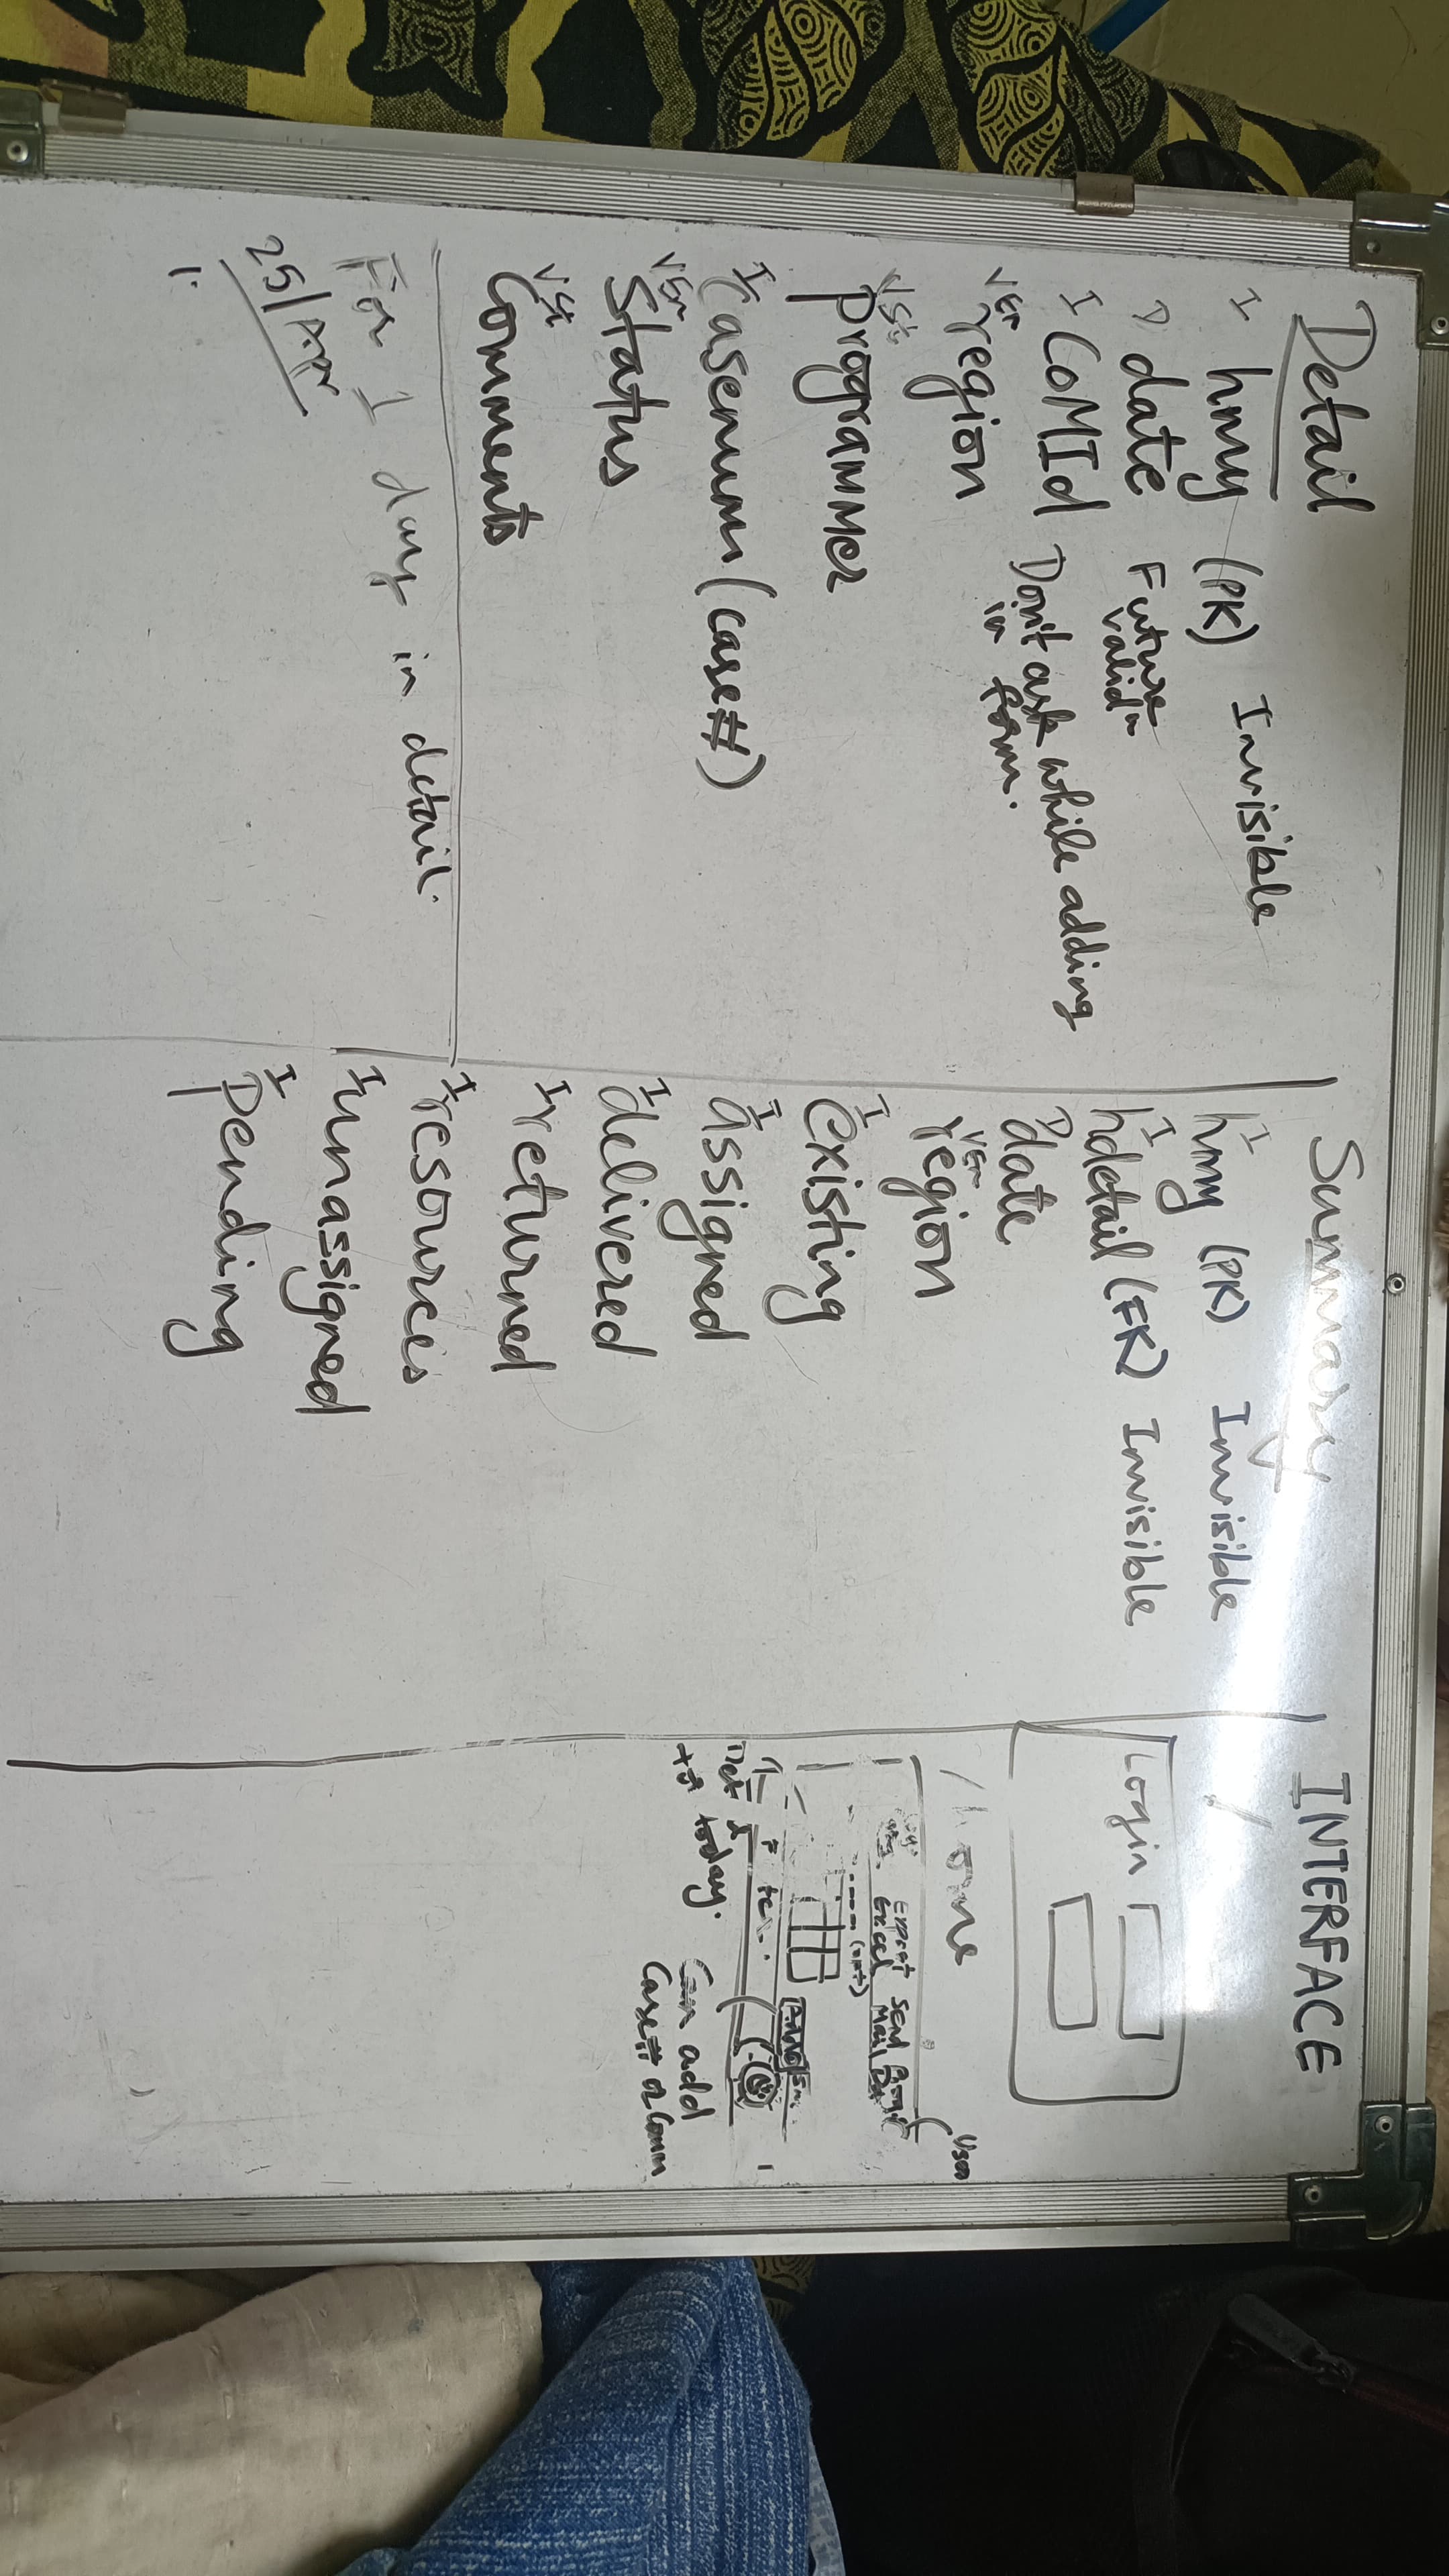 Detail
I hmy (PK) Invisible
D date Future
valid^n
I CoMId Don't ask while adding
in form.
VEn
region
VSt
programmer
I
Casenum (case#)
VEn
Status
VSt
Comments
For 1 day in detail.
25/Apr
1.
Summary
I
hmy (PK) Invisible
I
hdetail (FK) Invisible
D
date
VEn
region
I
existing
I
assigned
I
delivered
I
returned
I
resources
I
unassigned
I
pending
INTERFACE
/
Login
/home
User
Export Send
Excel Mail
(opt)
Add
today.
Can add
Case# or Comm